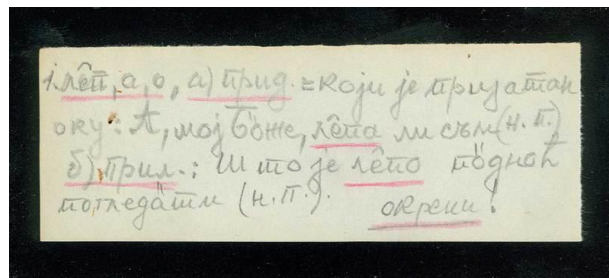 1. ле̑п, а, о, а) прид. = који је пријатан
оку: А, мој Бо̏же, ле̑па ли съм (н. п.)
б) прил.: Што је ле̑по по̏дноћ
погледа̏ти (н. п.). окрени!